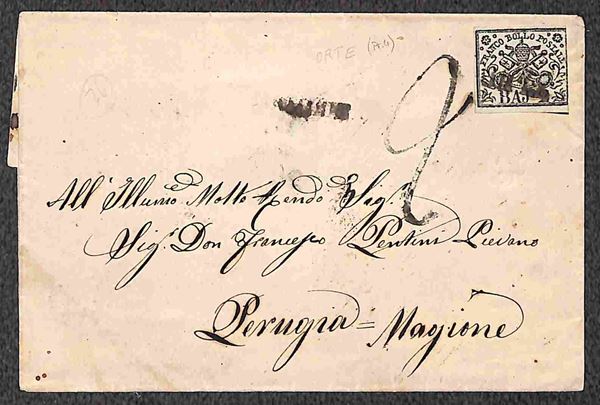 ORTE (P.G)
20
FRANCO BOLLO POSTALE
BAJ
2
All' Illumo e Molto Rendo Sig.
Sigr. Don Francesco Pentini Pievano
Perugia = Magione